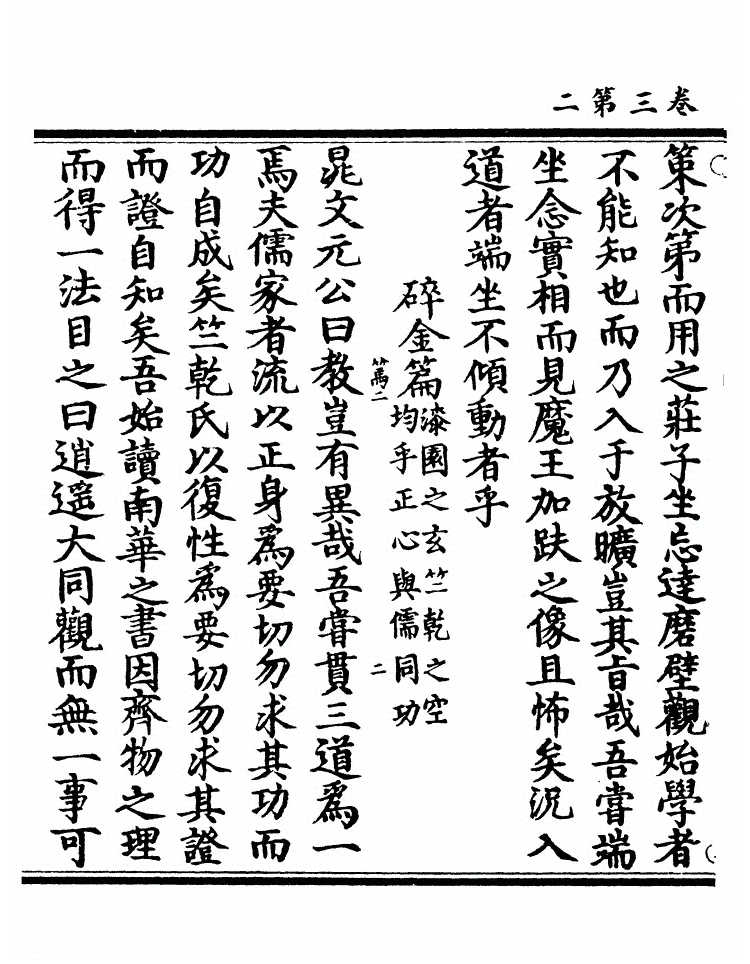 二第三卷
策次第而用之莊子坐忘達磨壁觀始學者
不能知也而乃入于放曠豈其旨哉吾嘗端
坐念實相而見魔王加趺之像且怖矣況入
道者端坐不傾動者乎
碎金篇漆園之玄竺乾之空
均乎正心與儒同功
篇二
二
晁文元公曰教豈有異哉吾嘗貫三道爲一
焉夫儒家者流以正身爲要切勿求其功而
功自成矣竺乾氏以復性爲要切勿求其證
而證自知矣吾始讀南華之書因齊物之理
而得一法目之曰逍遙大同觀而無一事可